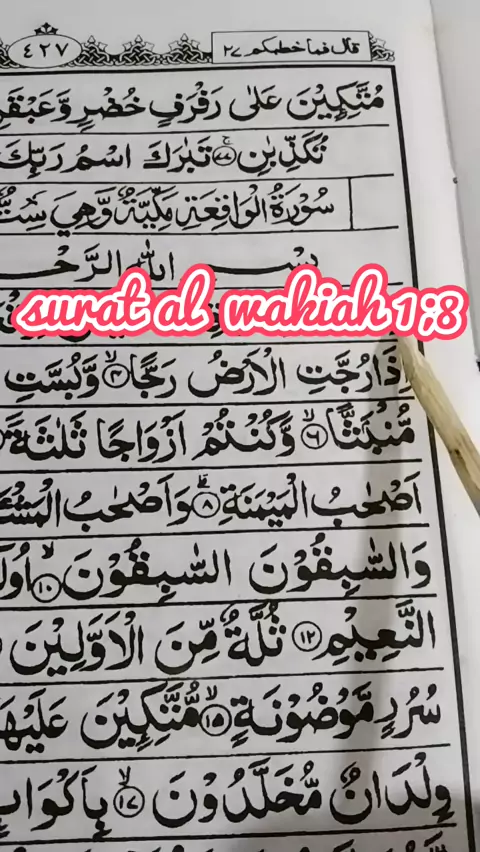 قال فما خطبكم ٢٧
٤٢٧
مُتَّكِـِٕيْنَ عَلٰى رَفْرَفٍ خُضْرٍ وَّعَبْقَرِ
تُكَذِّبٰنِ ٧٧ تَبٰرَكَ اسْمُ رَبِّكَ
سُوْرَةُ الْوَاقِعَةِ مَكِّيَّةٌ وَّهِيَ سِتٌّ
بِسْمِ اللهِ الرَّحْ
surat al wakiah 1;8
اِذَا رُجَّتِ الْاَرْضُ رَجًّا ٣ وَّبُسَّتِ
مُّنْۢبَثًّا ٦ وَّكُنْتُمْ اَزْوَاجًا ثَلٰثَةً
اَصْحٰبُ الْمَيْمَنَةِ ٨ وَاَصْحٰبُ الْمَشْـَٔ
وَالسّٰبِقُوْنَ السّٰبِقُوْنَ ١٠ اُولٰ
النَّعِيْمِ ١٢ ثُلَّةٌ مِّنَ الْاَوَّلِيْنَ
سُرُرٍ مَّوْضُوْنَةٍ ١٥ مُّتَّكِـِٕيْنَ عَلَيْهَا
وِلْدَانٌ مُّخَلَّدُوْنَ ١٧ بِاَكْوَابٍ